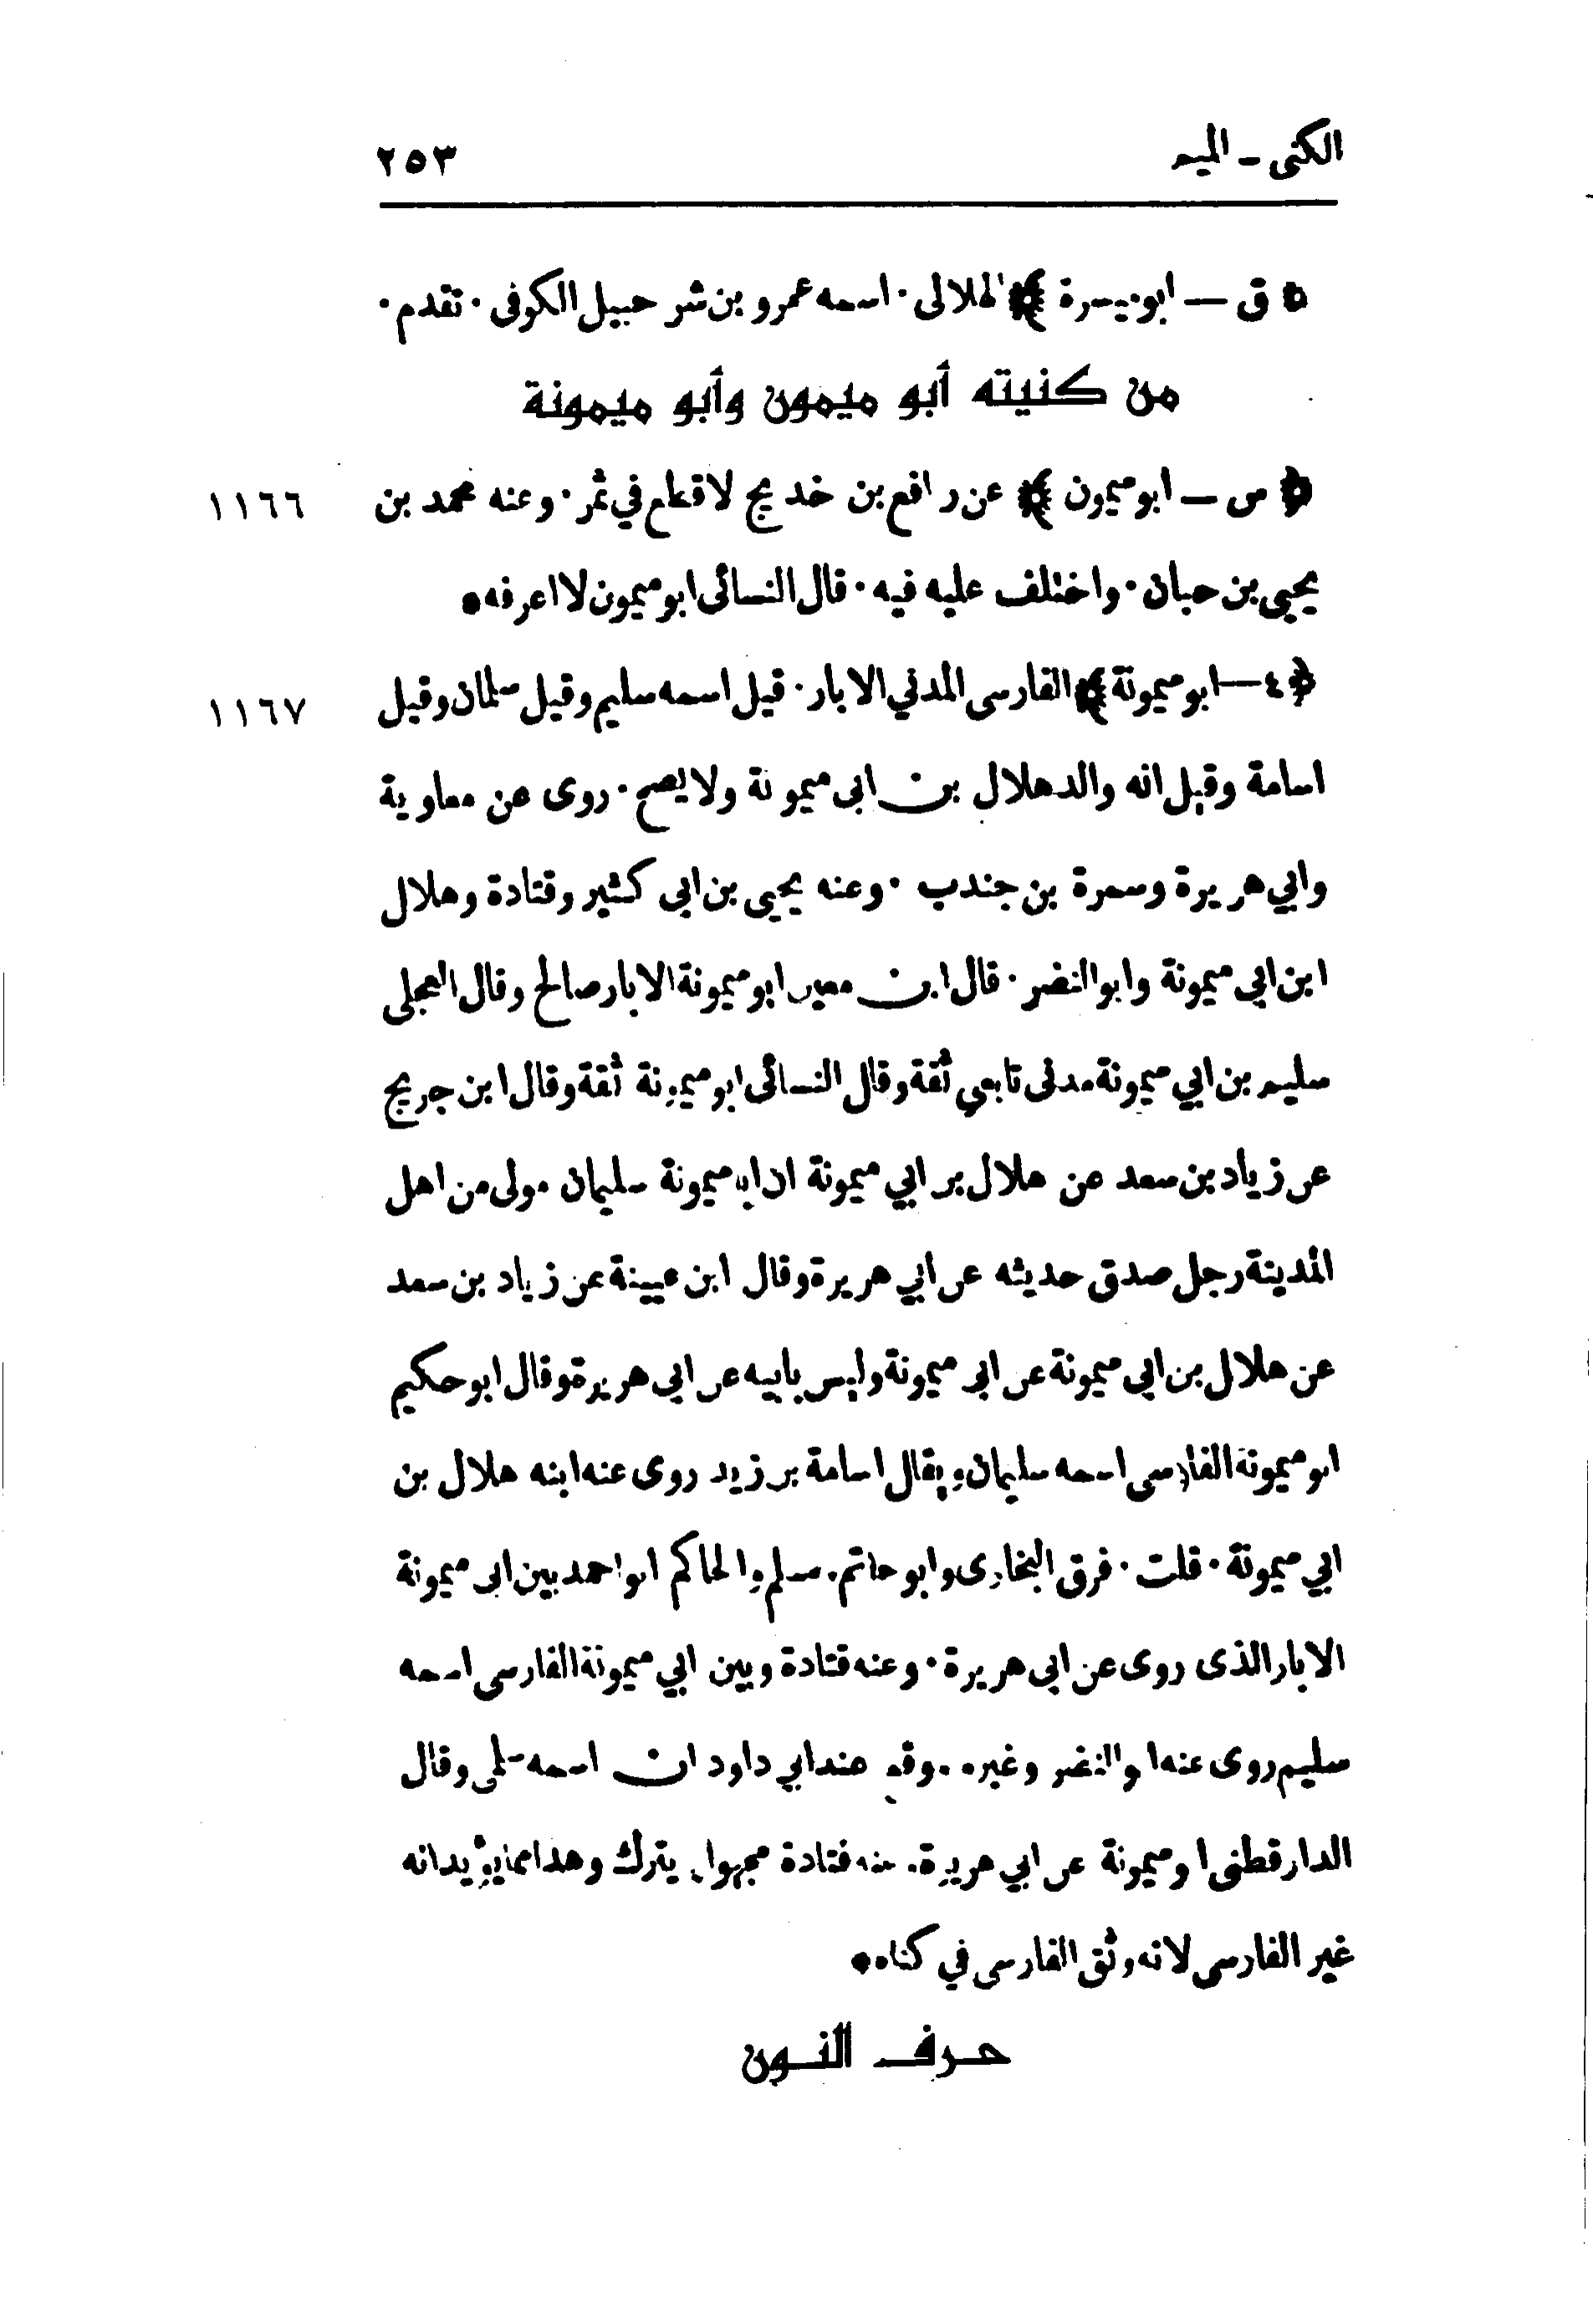 الكنى - الميم ٢٥٣
﴿ ق — ابو ميسرة ﴾ الهلالى · اسمه عمرو بن شرحبيل الكوفى · تقدم ·
من كنيته أبو ميمون وأبو ميمونة
﴿ س — ابو ميمون ﴾ عن رافع بن خديج لا قطع في ثمر · وعنه محمد بن ١١٦٦
يحيى بن حبان · واختلف عليه فيه · قال النسائى ابو ميمون لا اعرفه *
﴿ ٤ — ابو ميمونة ﴾ الفارسى المدني الابار · قيل اسمه سليم وقيل سلمان وقيل ١١٦٧
اسامة وقيل انه والد هلال بن ابى ميمونة ولا يصح · روى عن معاوية
وابي هريرة وسمرة بن جندب · وعنه يحيى بن ابى كثير وقتادة وهلال
ابن ابي ميمونة وابو النضر · قال ابن معين ابو ميمونة الابار صالح وقال العجلى
سليم بن ابي ميمونة مدنى تابعي ثقة وقال النسائى ابو ميمونة ثقة وقال ابن جريج
عن زياد بن سعد عن هلال بن ابي ميمونة ان ابا ميمونة سليمان مولى من اهل
المدينة رجل صدق حديثه عن ابي هريرة وقال ابن عيينة عن زياد بن سعد
عن هلال بن ابى ميمونة عن ابى ميمونة وليس بابيه عن ابي هريرة وقال ابو حكيم
ابو ميمونة الفارسى اسمه سليمان ويقال اسامة بن زيد روى عنه ابنه هلال بن
ابي ميمونة · قلت · فرق البخارى وابو حاتم ومسلم والحاكم ابو احمد بين ابى ميمونة
الابار الذى روى عن ابى هريرة · وعنه قتادة وبين ابي ميمونة الفارسى اسمه
سليم روى عنه ابو النضر وغيره · ووقع عند ابي داود ان اسمه سلمى وقال
الدارقطنى ابو ميمونة عن ابي هريرة وعنه قتادة مجهول يترك وهذا مما يؤيد انه
غير الفارسى لانه وثق الفارسى في كناه *
حرف النون